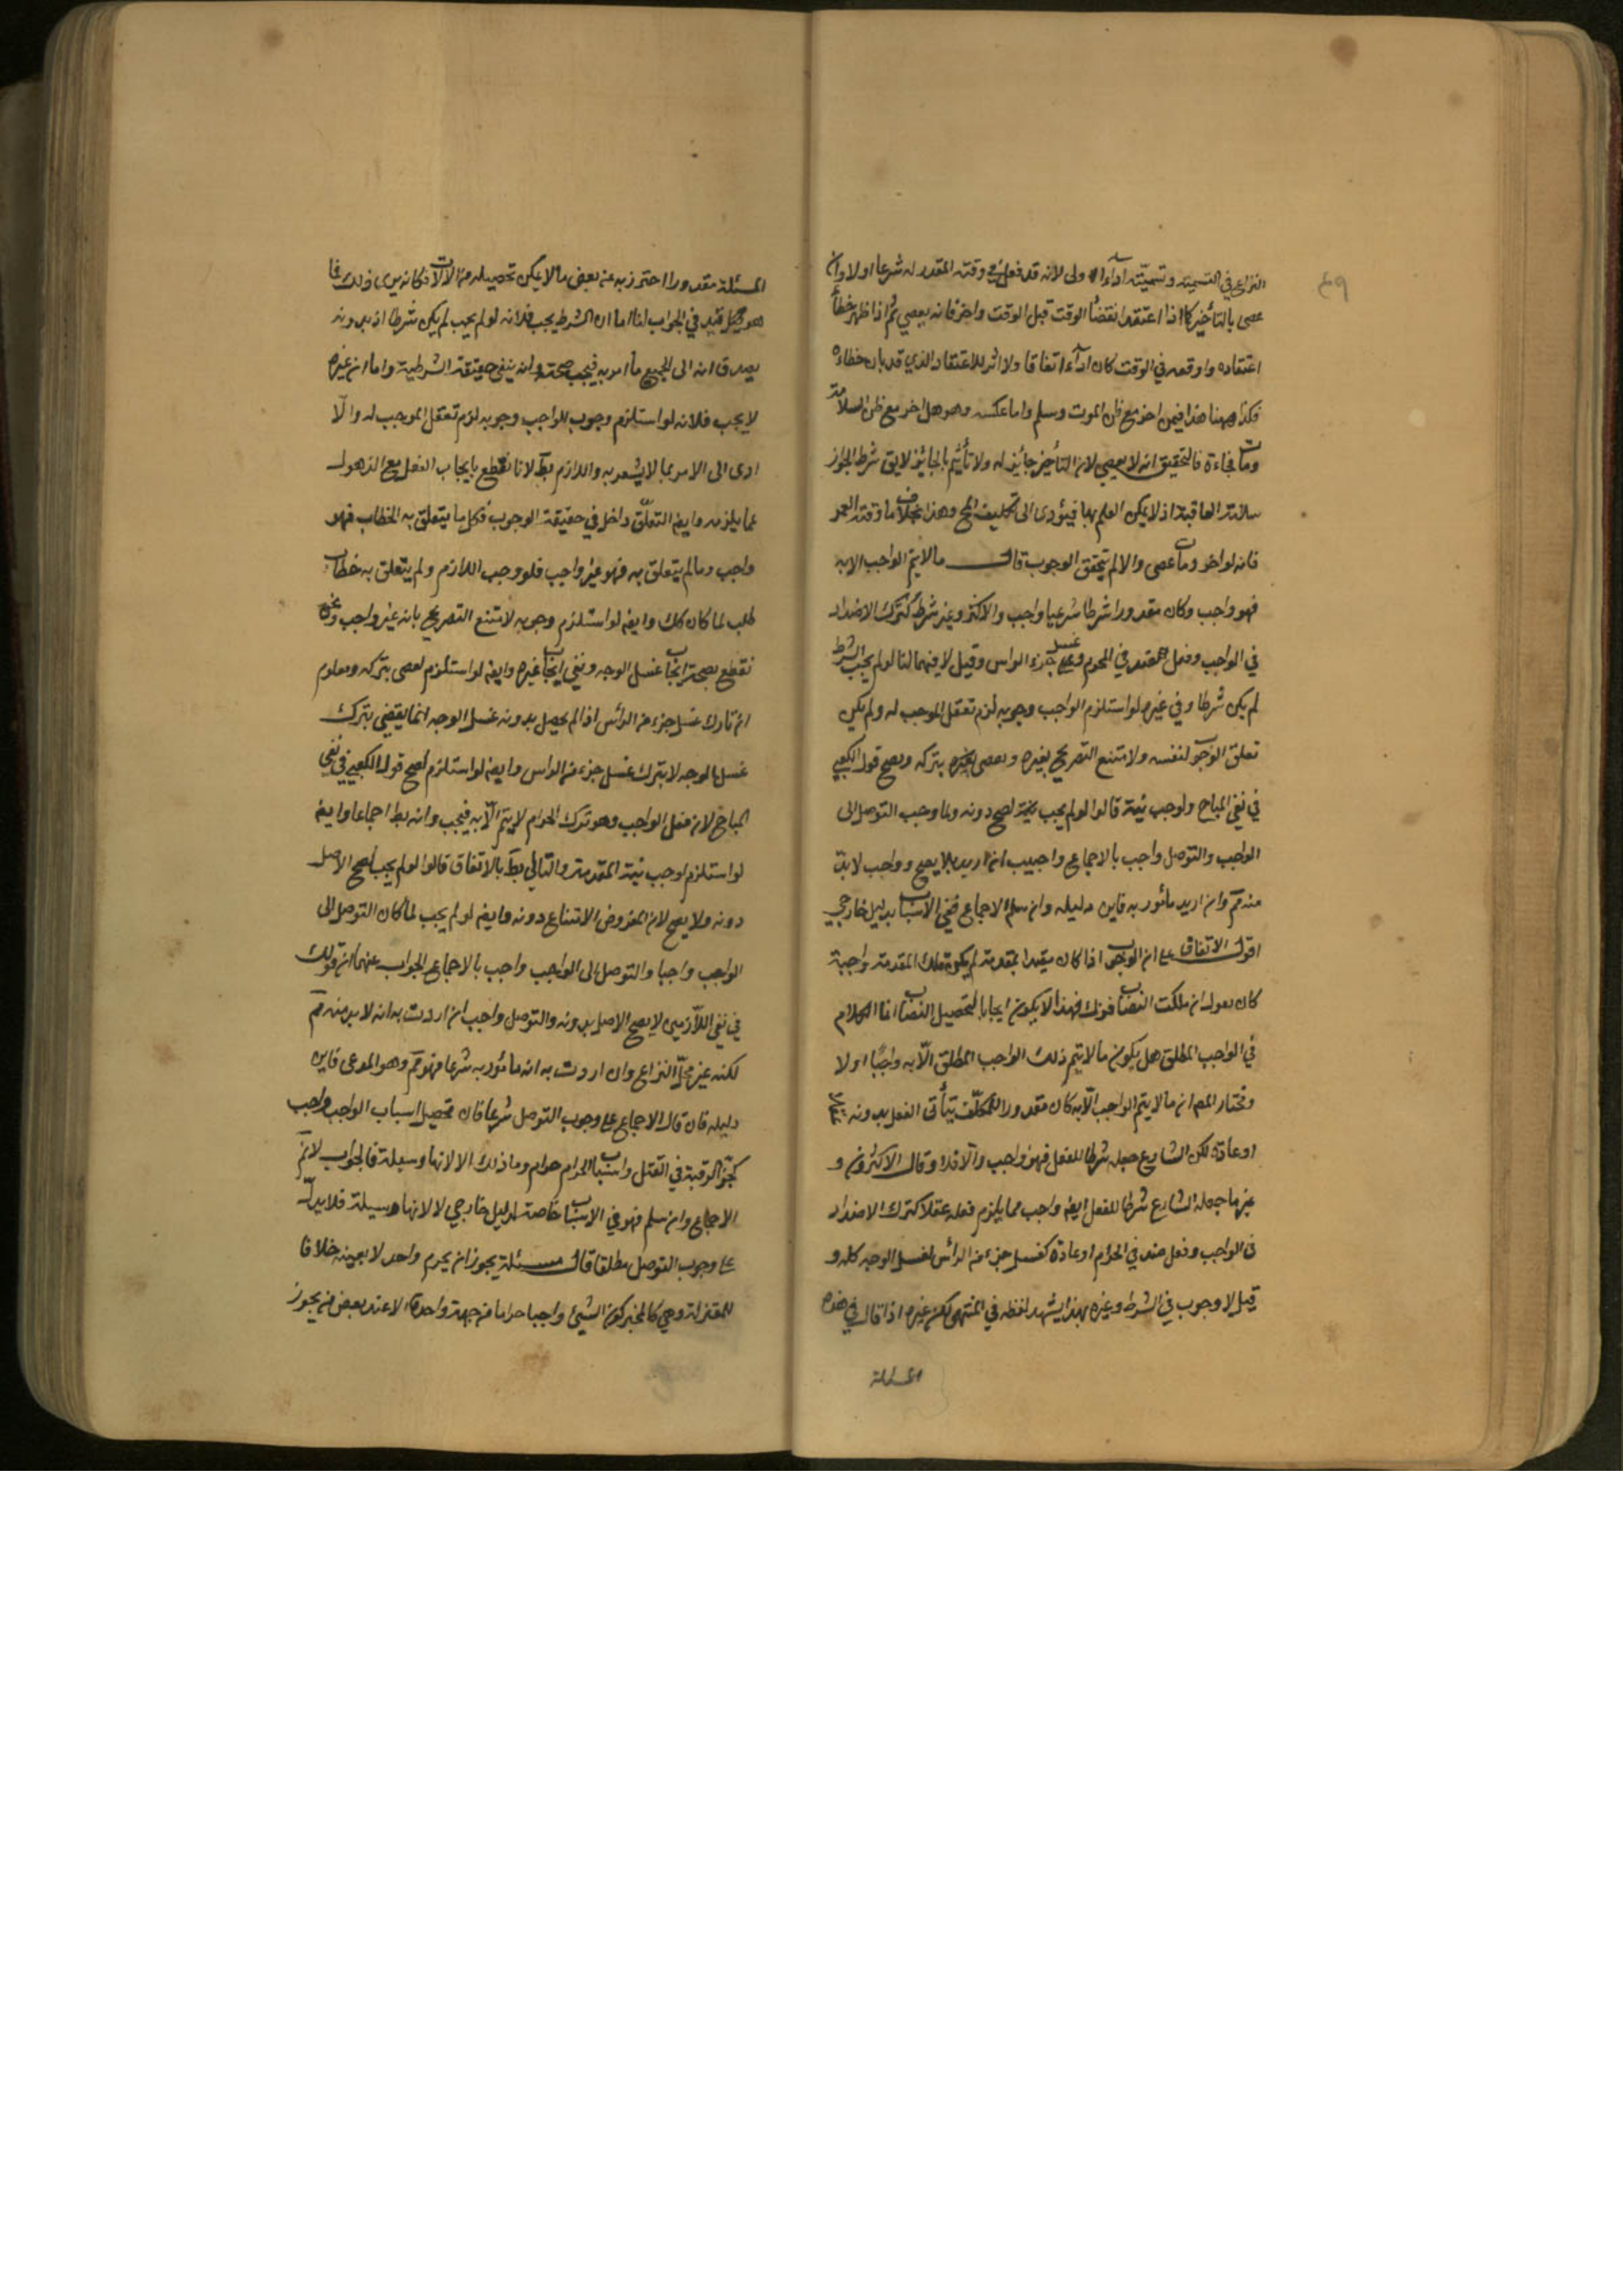 ٤٩
النزاع في التسمية وتسميته اداءً اولى لانه قد فعل في وقته المقدر له شرعا اولا وان
عصى بالتأخير كما اذا اعتقد انقضاء الوقت قبل الوقت واخر فانه يعصي ثم اذا ظهر خطأ
اعتقاده واوقعه في الوقت كان اداءً اتفاقا ولا اثر للاعتقاد الذي قد بان خطاءه
فكذا ههنا هذا فيمن اخر مع ظن الموت وسلم واما عكسه وهو هل اخر مع ظن السلامة
ومات فجاءة فالتحقيق انه لا يعصي لان التأخير جائز له ولا تأثيم بالجائز لايق شرط الجواز
سلامة العاقبة اذ لا يمكن العلم بها فيؤدى الى تكليف المح وهذا بخلاف ما وقته العمر
فانه لو اخر ومات عصى والا لم يتحقق الوجوب قال ما لا يتم الواجب الا به
فهو واجب وكان مقدورا شرطا شرعيا واجب والاكثر وغير شرط كترك الاضداد
في الواجب وفعل ضد في المحرم وغسل جزء الراس وقيل لا فيهما لنا لو لم يجب الشرط
لم يكن شرطا وفي غيره لو استلزم الواجب وجوبه لزم تعقل الموجب له ولم يكن
تعلق الوجوب لنفسه ولامتنع التصريح بغيره ويعصى بتركه ويصح قول الكعبي
في نفي المباح ولوجب نيته قالوا لو لم يجب لصح دونه ولما وجب التوصل الى
الواجب والتوصل واجب بالاجماع واجيب ان اريد بلا يصح وواجب لابد
منه فم وان اريد مأمور به فاين دليله وان سلم الاجماع ففي الاسباب بدليل خارجي
اقول الاتفاق على ان الوجوب اذا كان مقيدا بمقدمة لم يكن تلك المقدمة واجبة
كان يقول ان ملكت النصاب فزك فهذا لا يكون ايجابا لتحصيل النصاب انما الكلام
في الواجب المطلق هل يكون ما لا يتم ذلك الواجب المطلق الا به واجبا اولا
ومختار المص ان ما لا يتم الواجب الا به كان مقدورا للمكلف يتأتى الفعل بدونه
او عادة لكن الشارع جعله شرطا للفعل فهو واجب والا فلا وقال الاكثرون و
غير ما جعله الشارع شرطا للفعل ايضا واجب مما يلزم فعله عقلا كترك الاضداد
في الواجب وفعل ضد في الحرام او عادة كغسل جزء من الرأس لغسل الوجه كله و
قيل لا وجوب في الشرط وغيره بهذا يشهد لفظه في المنتهى لكن غيره اذا قال في هذه
المسئلة
المسئلة مقدورا احترز به عن بعض ما لا يمكن تحصيله من الالات فكانه يرى ذلك فا
هو قيد في الجواب لنا اما ان الشرط يجب فلانه لو لم يجب لم يكن شرطا اذ بدونه
يصدق انه اتى بجميع ما امر به فيجب صحته وانه ينفي حقيقة الشرطية واما ان غيره
لا يجب فلانه لو استلزم وجوب الواجب وجوبه لزم تعقل الموجب له والا
ادى الى الامر بما لا يشعر به واللازم بط لانا نقطع بايجاب الفعل مع الذهول
عما يلزمه وايضا التعلق داخل في حقيقة الوجوب فكل ما يتعلق به الخطاب فهو
واجب وما لم يتعلق به فهو غير واجب فلو وجب اللازم ولم يتعلق به خطاب
طلب لما كان كك وايضا لو استلزم وجوبه لامتنع التصريح بانه غير واجب ونحن
نقطع بصحة ايجاب غسل الوجه ونفي ايجاب غيره وايضا لو استلزم لعصى بتركه ومعلوم
ان تارك غسل جزء من الرأس اذا لم يحصل بدونه غسل الوجه انما يقضي بترك
غسل الوجه لا بترك غسل جزء من الراس وايضا لو استلزم لصح قول الكعبي في نفي
المباح لان فعل الواجب وهو ترك الحرام لا يتم الا به فيجب وانه بط اجماعا وايضا
لو استلزم لوجب نية المقدمة والتالي بط بالاتفاق قالوا لو لم يجب لصح الاصل
دونه ولا يصح لان المفروض الامتناع دونه وايضا لو لم يجب لما كان التوصل الى
الواجب واجبا والتوصل الى الواجب واجب بالاجماع الجواب عنهما ان قولك
في نفي اللازمين لا يصح الاصل بدونه والتوصل واجب ان اردت به انه لابد منه فم
لكنه غير محل النزاع وان اردت به انه مأمور به شرعا فهو مم وهو المدعى فاين
دليله فان قال الاجماع على وجوب التوصل شرعا فان تحصيل اسباب الواجب واجب
كجز الرقبة في القتل واسباب الحرام حرام وما ذلك الا لانها وسيلة فالجواب لا نم
الاجماع وان سلم فهو في الاسباب خاصة لدليل خارجي لا لانها وسيلة فلا يدل
على وجوب التوصل مطلقا قال مسئلة يجوز ان يحرم واحد لا بعينه خلافا
للمعتزلة وهي كالمخير كون الشيئ واجبا حراما من جهة واحدة الا عند بعض من يجوز